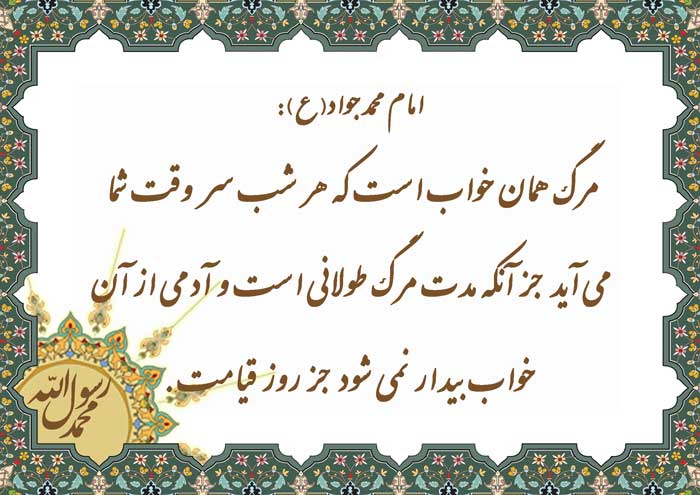 امام محمد جواد(ع):
مرگ همان خواب است که هر شب سر وقت شما
می آید جز آنکه مدت مرگ طولانی است و آدمی از آن
خواب بیدار نمی شود جز روز قیامت.
محمد رسول الله